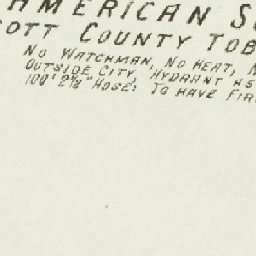 AMERICAN S
COTT COUNTY TOB
NO WATCHMAN, NO HEAT, N
OUTSIDE CITY, HYDRANT
100' 2½" HOSE: TO HAVE FIR